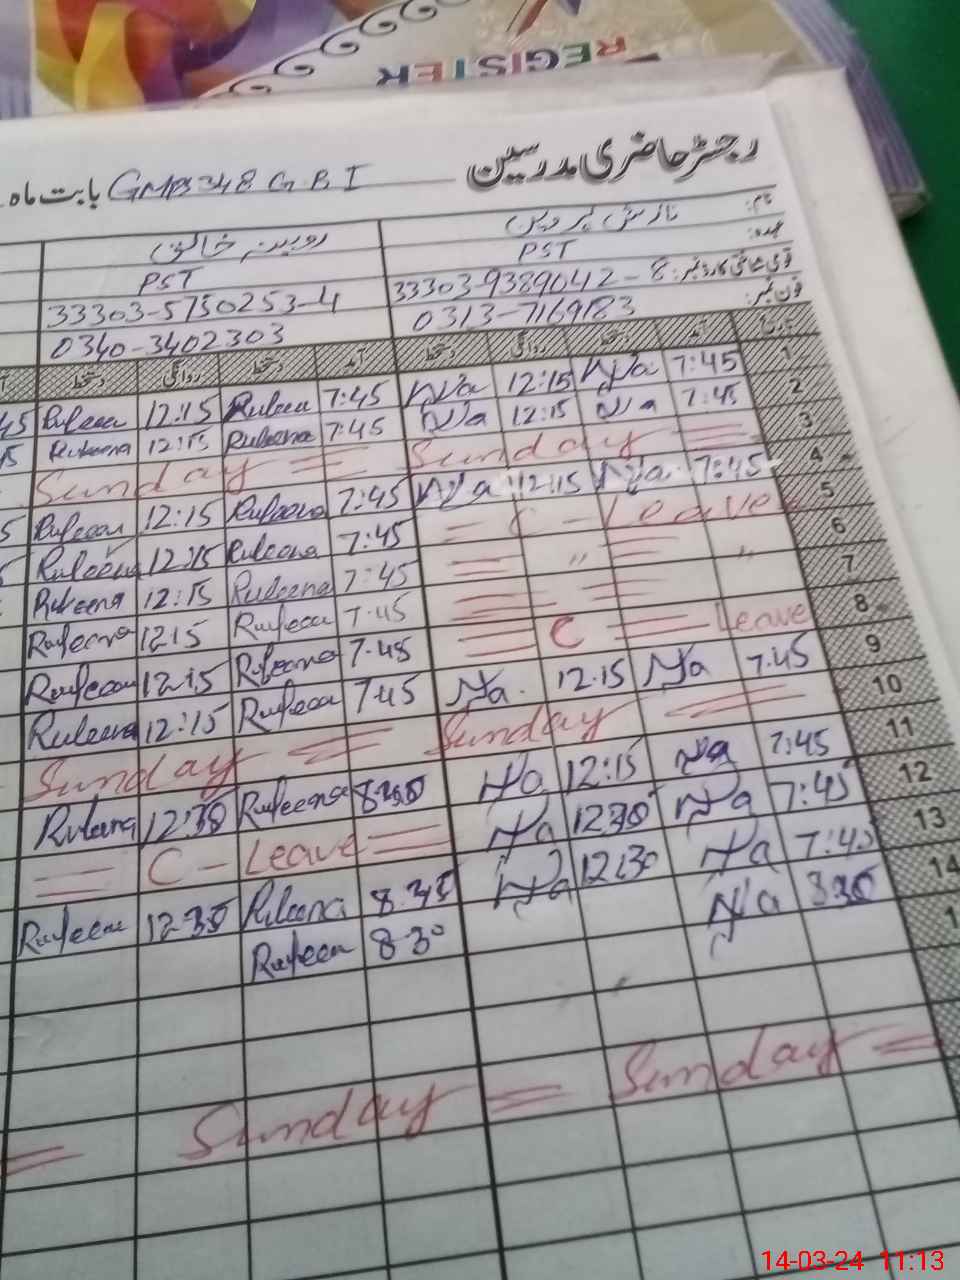 REGISTER
رجسٹر حاضری مدرسین GMPS 348 G B I بابت ماہ
نام: نازش پروین روبینہ خالق
عہدہ: PST PST
قومی شناختی کارڈ نمبر: 33303-9389642-8 33303-5750253-4
فون نمبر: 0313-7169183 0340-3402303
تاریخ آمد دستخط روانگی دستخط آمد دستخط روانگی دستخط
1 7:45 Na 12:15 Na 7:45 Rubeena 12:15 Rubeena 45
2 7:45 Na 12:15 Na 7:45 Rubeena 12:15 Rubeena
3 Sunday Sunday
4 7:45 Na 12:15 Na 7:45 Rubeena 12:15 Rubeena
5 C - Leave 7:45 Rubeena 12:15 Rubeena
6 〃 〃 7:45 Rubeena 12:15 Rubeena
7 7:45 Rubeena 12:15 Rubeena
8 C Leave 7:45 Rubeena 12:15 Rubeena
9 7:45 Na 12:15 Na 7:45 Rubeena 12:15 Rubeena
10 Sunday Sunday
11 7:45 Na 12:15 Na Rubeena Rubeena
12 7:45 Na 12:30 Na C - Leave
13 7:45 Na 12:30 Na Rubeena 12:30 Rubeena
14 8:30 Na 8:30 Rubeena
1
Sunday Sunday
14-03-24 11:13